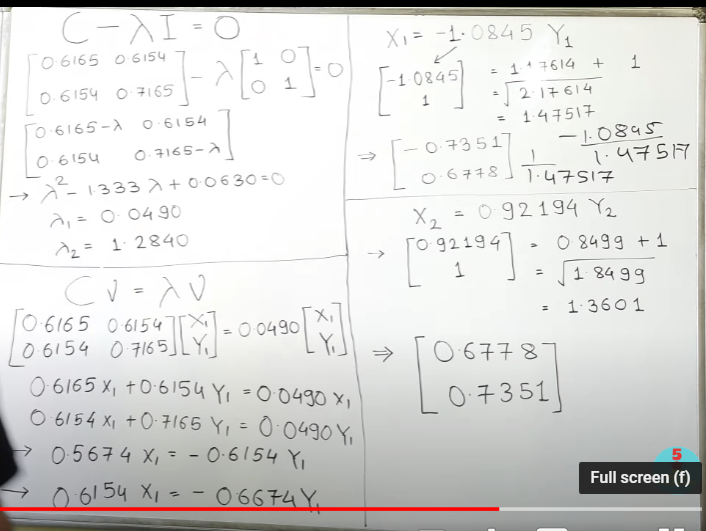 C - λI = 0
[0.6165 0.6154
0.6154 0.7165] - λ [1 0
0 1] = 0
[0.6165-λ 0.6154
0.6154 0.7165-λ]
→ λ² - 1.333λ + 0.0630 = 0
λ₁ = 0.0490
λ₂ = 1.2840
CV = λV
[0.6165 0.6154
0.6154 0.7165] [X₁
Y₁] = 0.0490 [X₁
Y₁]
0.6165 X₁ + 0.6154 Y₁ = 0.0490 X₁
0.6154 X₁ + 0.7165 Y₁ = 0.0490 Y₁
→ 0.5674 X₁ = - 0.6154 Y₁
→ 0.6154 X₁ = - 0.6674 Y₁
X₁ = -1.0845 Y₁
[-1.0845
1] = 1.17614 + 1
= √2.17614
= 1.47517
⇒ [-0.7351
0.6778] 1/1.47517 -1.0845/1.47517
X₂ = 0.92194 Y₂
→ [0.92194
1] = 0.8499 + 1
= √1.8499
= 1.3601
⇒ [0.6778
0.7351]
5
Full screen (f)